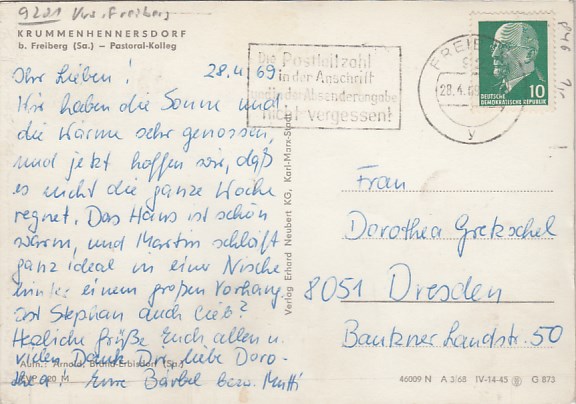 9201 Krs. Freiberg
KRUMMENHENNERSDORF
b. Freiberg (Sa.) – Pastoral-Kolleg
Ihr Lieben! 28.4.69.
Wir haben die Sonne und
die Wärme sehr genossen,
und jetzt hoffen wir, daß
es nicht die ganze Woche
regnet. Das Haus ist schön
warm, und Martin schläft
ganz ideal in einer Nische
hinter einem großen Vorhang.
Ist Stephan auch lieb?
Herzliche Grüße Euch allen u.
vielen Dank Dir, liebe Doro-
thea! Eure Bärbel bzw. Mutti
Aufn.: Arnold, Brand-Erbisdorf (Sa.)
M
Verlag Erhard Neubert KG, Karl-Marx-Stadt
Die Postleitzahl
in der Anschrift
und in der Absenderangabe
nicht vergessen!
FREIBERG
28.4.69
y
10
DEUTSCHE
DEMOKRATISCHE REPUBLIK
Frau
Dorothea Gretzschel
8051 Dresden
Bautzner Landstr. 50
46009 N A 3/68 IV-14-45 G 873